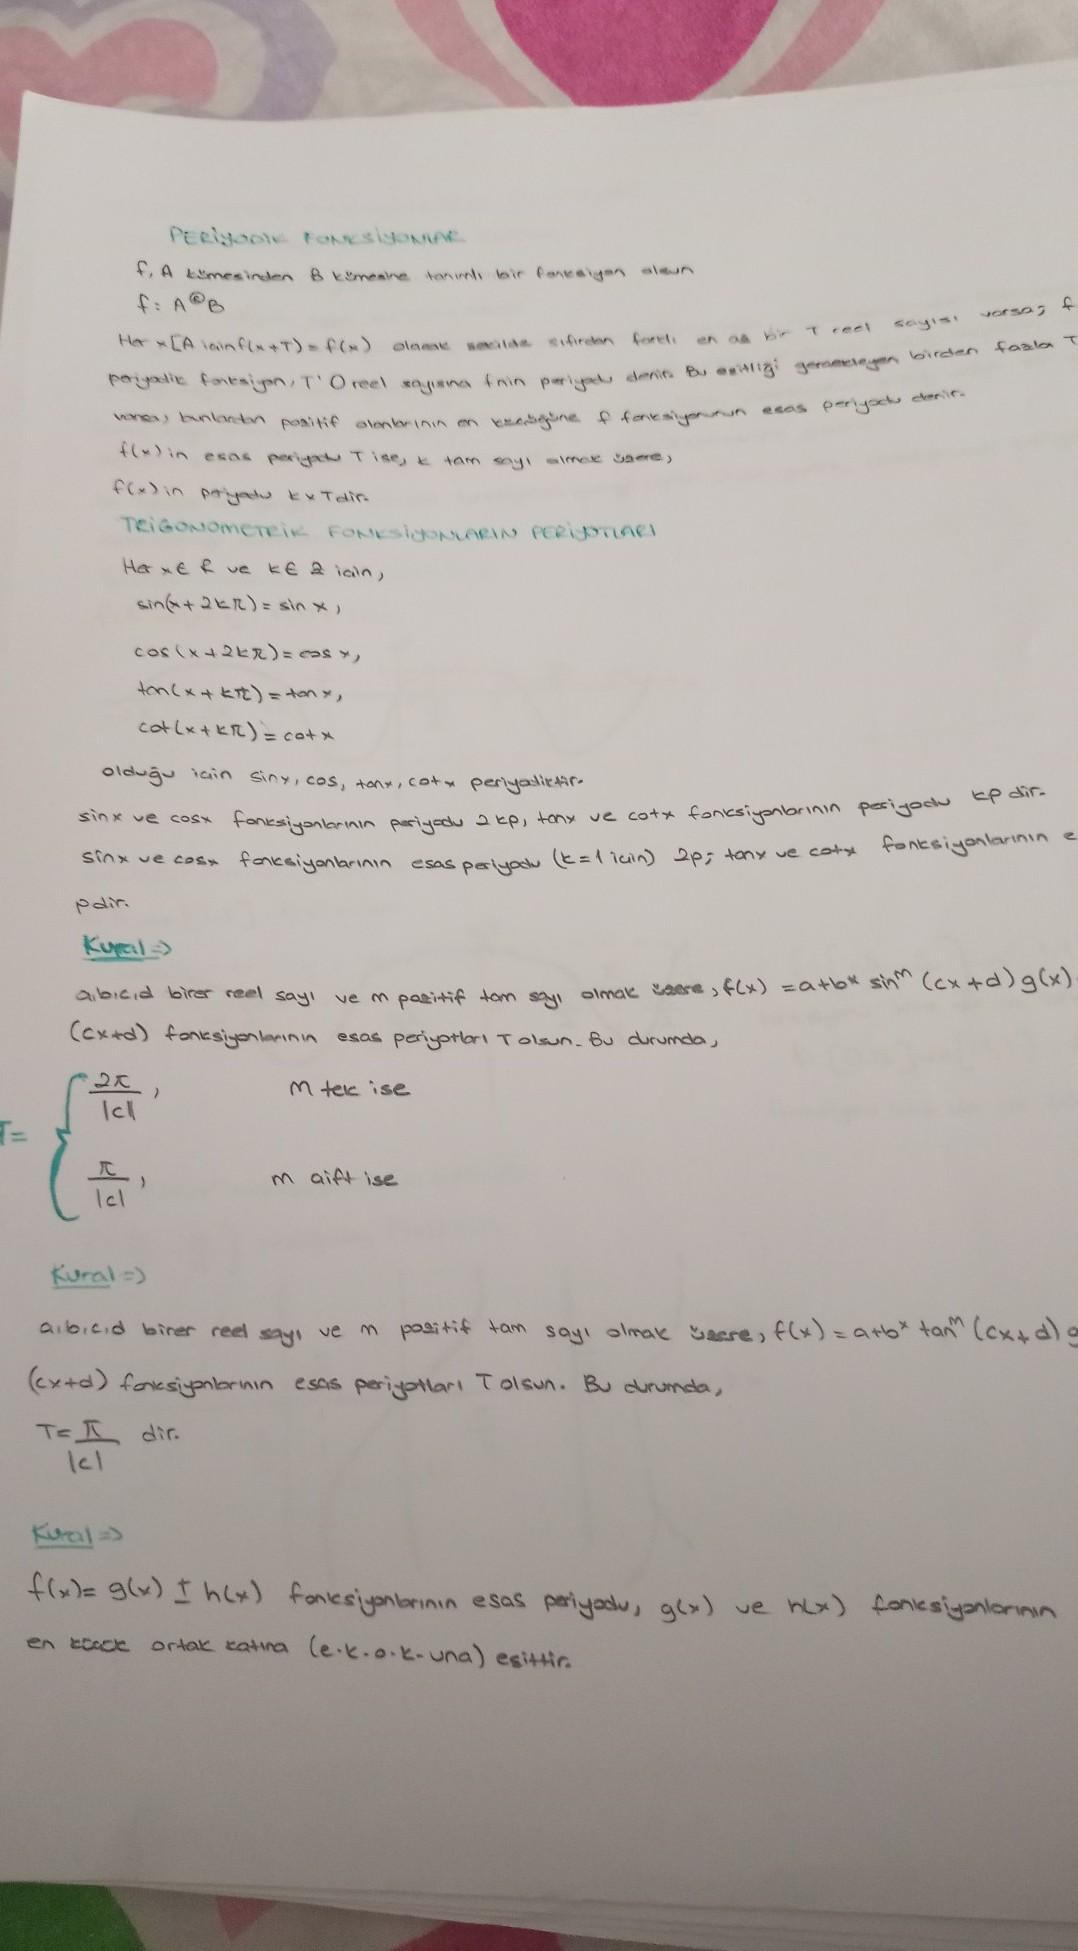 PERİYODİK FONKSİYONLAR
f, A kümesinden B kümesine tanımlı bir fonksiyon olsun
f: A®B
Her x[A için f(x+T)=f(x) olacak şekilde sıfırdan farklı en az bir T reel sayısı varsa; f
periyodik fonksiyon, T'O reel sayısına f nin periyodu denir. Bu eşitliği gerçekleyen birden fazla T
varsa, bunlardan pozitif olanlarının en küçüğüne f fonksiyonunun esas periyodu denir.
f(x) in esas periyodu T ise, k tam sayı olmak üzere,
f(x) in periyodu k x T dir.
TRİGONOMETRİK FONKSİYONLARIN PERİYOTLARI
Her x∈ R ve k∈ Z için,
sin(x+2kπ)=sin x,
cos(x+2kπ)=cos x,
tan(x+kπ)=tan x,
cot(x+kπ)=cot x
olduğu için sinx, cos, tanx, cotx periyodiktir.
sinx ve cosx fonksiyonlarının periyodu 2kp, tanx ve cotx fonksiyonlarının periyodu kp dir.
sinx ve cosx fonksiyonlarının esas periyodu (k=1 için) 2p; tanx ve cotx fonksiyonlarının e
pdir.
Kural=>
a,b,c,d birer reel sayı ve m pozitif tam sayı olmak üzere, f(x) =a+b* sin^m (cx+d) g(x)
(cx+d) fonksiyonlarının esas periyotları T olsun. Bu durumda,
2π/|c|, m tek ise
T=
π/|c|, m çift ise
Kural=)
a,b,c,d birer reel sayı ve m pozitif tam sayı olmak üzere, f(x)=a+b* tan^m (cx+d) g
(cx+d) fonksiyonlarının esas periyotları T olsun. Bu durumda,
T=π/|c| dir.
Kural=>
f(x)= g(x) ± h(x) fonksiyonlarının esas periyodu, g(x) ve h(x) fonksiyonlarının
en küçük ortak katına (e.k.o.k-una) eşittir.